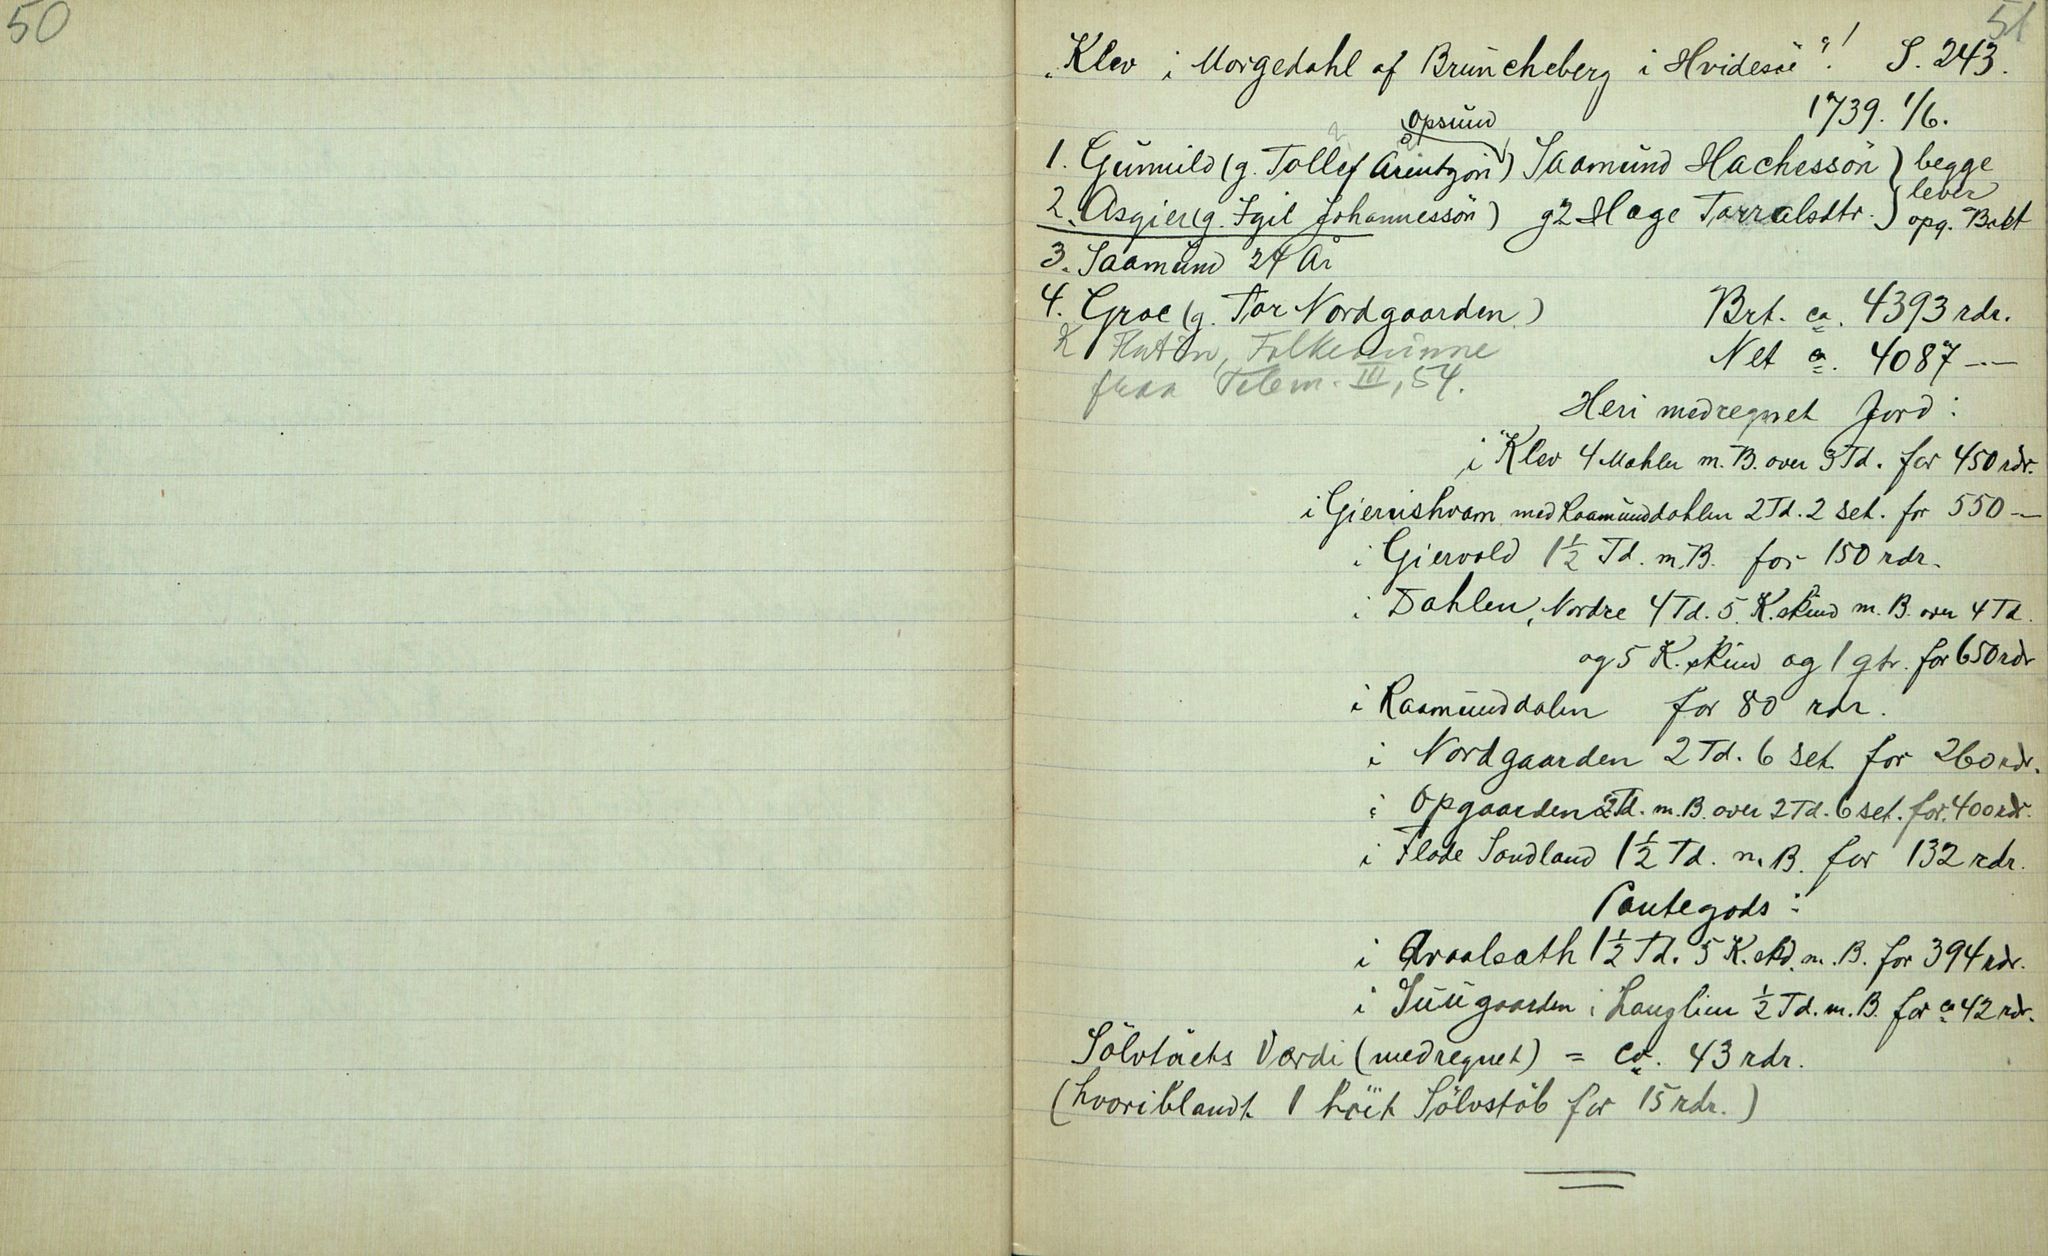 50
51
„Klev i Morgedahl af Brüncheberg i Hvidesøe"! S. 243.
1739. 1/6.
Opsünd
1. Günnild (g. Tollef Arentzön) Saamünd Hachessön } begge
2. Asgier (g. Egil Johannessön) g2 Hage Tarralsdtr. } lever
opg. Bokt
3. Saamünd 24 År
4. Groe (g. Tor Nordgaarden)
Brt. ca. 4393 rdr.
K Flatin, Folkeminne
Net ca. 4087 -.-
fraa Telem. III, 54.
Heri medregnet Jord:
i Klev 4 Mæhler m. B. over 3 Td. for 450 rdr.
i Giernishvam med Raamünddahlen 2 Td. 2 set. for 550 -.-
i Giervold 1½ Td. m. B. for 150 rdr.
i Dahlen, Nordre 4 Td. 5 K.skind m. B. over 4 Td.
og 5 K.skind og 1 qtr. for 650 rdr
i Raamünddalen for 80 rdr.
i Nordgaarden 2 Td. 6 set. for 260 rdr.
i Opgaarden 2 Td. m. B. over 2 Td. 6 set. for 400 rdr.
i Flade Sandland 1½ Td. m. B. for 132 rdr.
Pantegods:
i Qvaalsæth 1½ Td. 5 K.skd. m. B. for 394 rdr.
i Süügaarden i Langlim ½ Td. m. B. for ca 42 rdr.
Sölvtöiets Værdi (medregnet) = ca. 43 rdr.
(hvoriblandt 1 höit Sölvstöb for 15 rdr.)